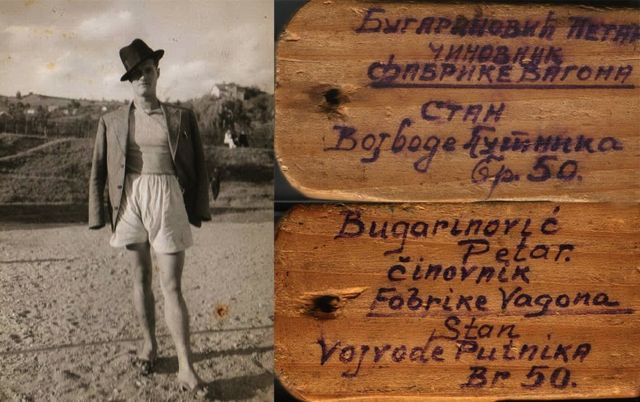 Бугариновић Петар
чиновник
фабрике вагона
стан
Војводе Путника
бр. 50.
Bugarinović
Petar.
činovnik
Fabrike Vagona
Stan
Vojvode Putnika
Br 50.